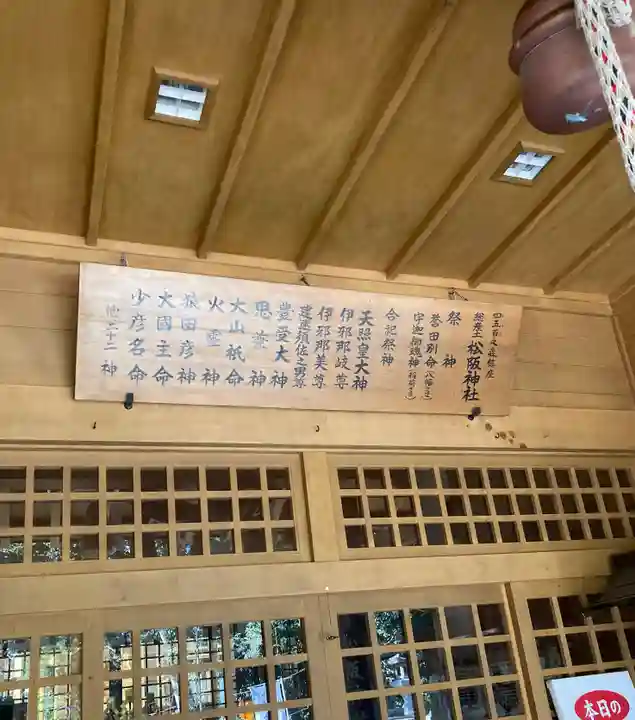 四五百之森鎮座
総産土 松阪神社
祭神
誉田別命(八幡さま)
宇迦御魂神(稲荷さま)
合祀祭神
天照皇大神
伊邪那岐尊
伊邪那美尊
建速須佐之男尊
豊受大神
思兼神
大山祇命
火霊神
猿田彦神
大國主命
少彦名命
他二十二神
本日の